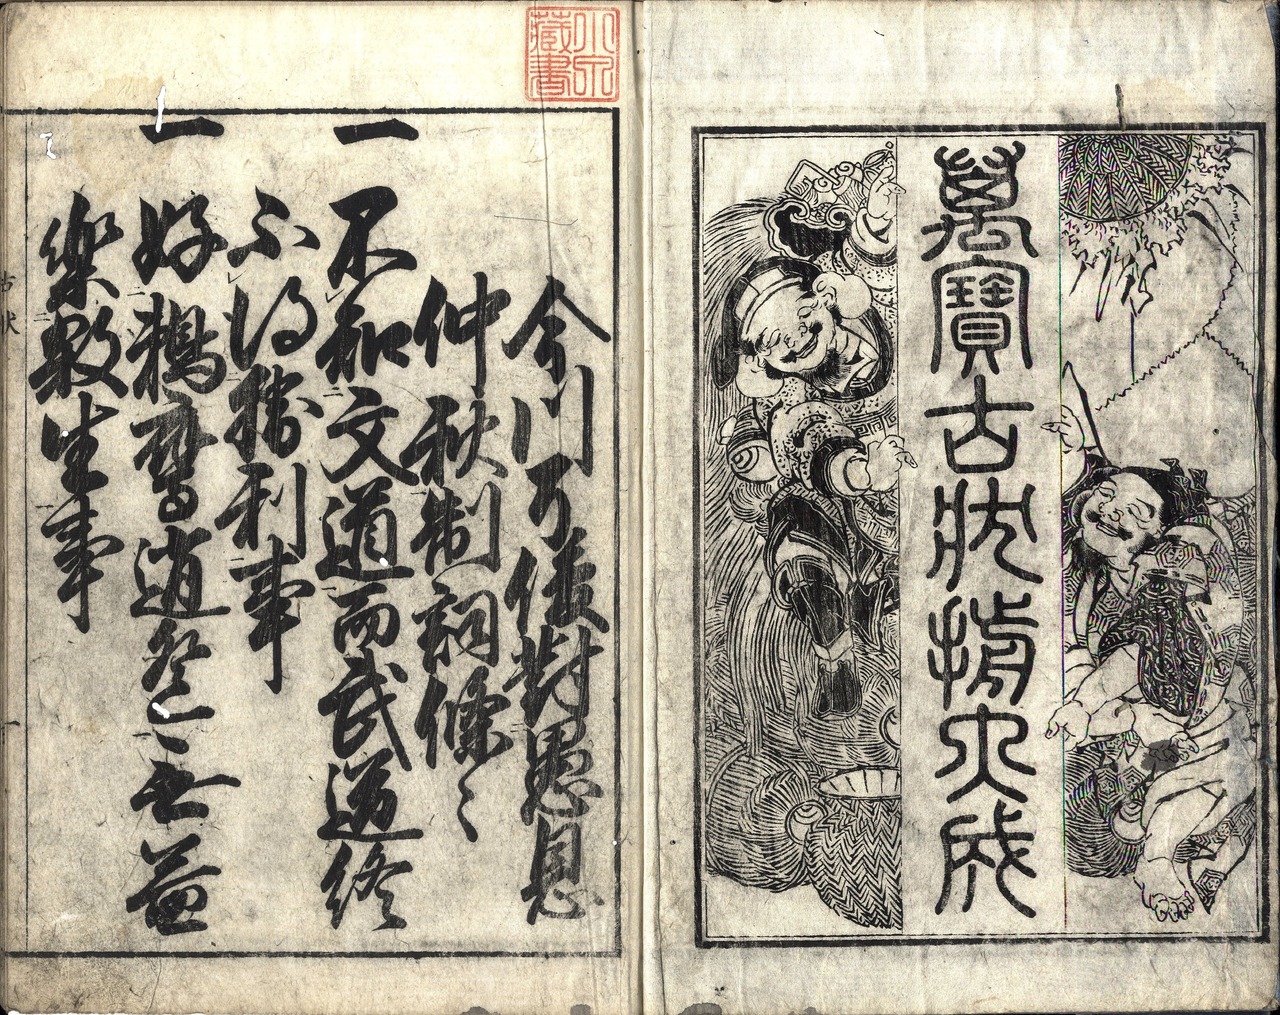 萬寶古状揃大成
藏書
今川了俊對愚息
仲秋制詞條々
一 不知文道而武道終
不得勝利事
一 好鵜鷹逍遥無益
樂殺生事
古状
一